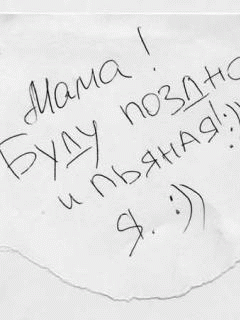 Мама!
Буду поздно
и пьяная! :))
Я. :))